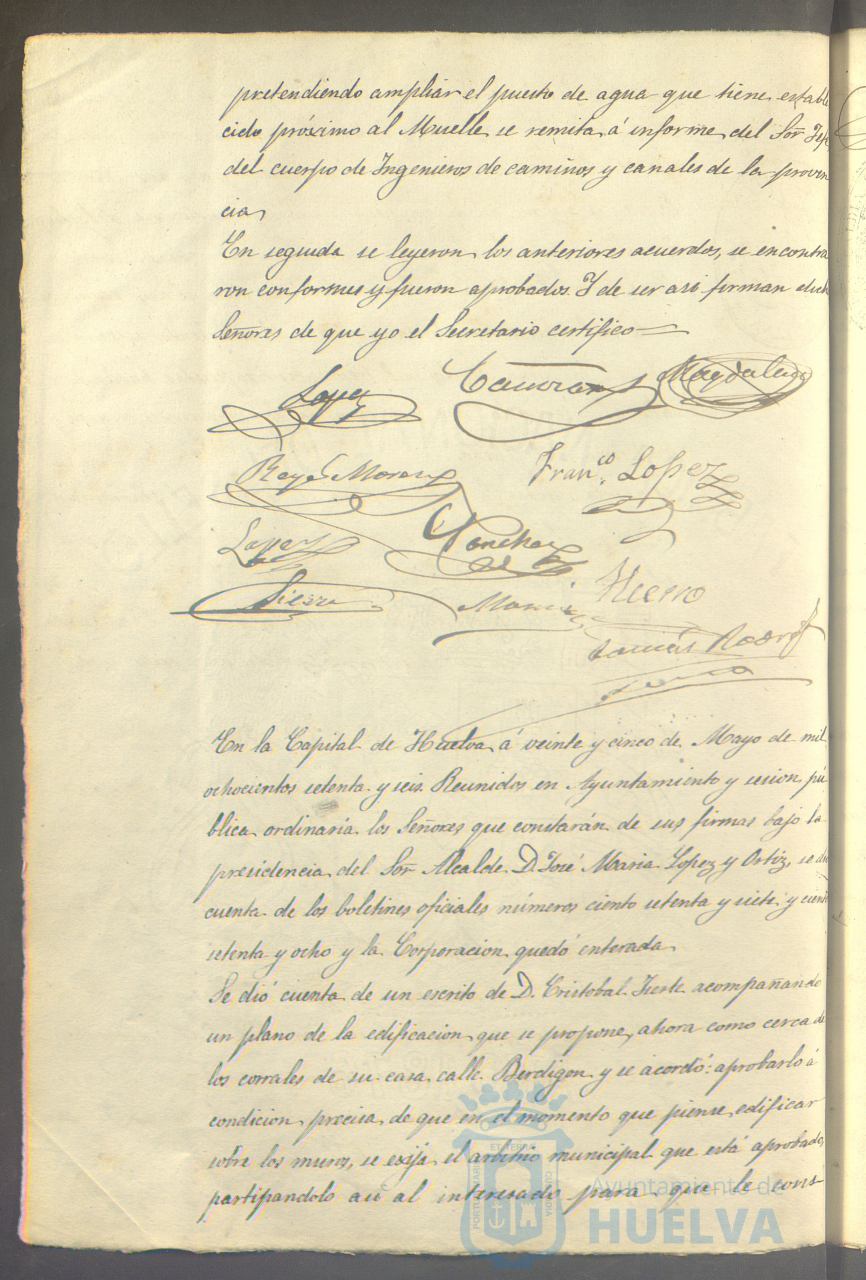 pretendiendo ampliar el puesto de agua que tiene estable
cido próximo al Muelle se remita á informe del Sor Jefe
del cuerpo de Ingenieros de caminos y canales de la provin
cia
En seguida se leyeron los anteriores acuerdos, se encontra
ron conformes y fueron aprobados. Y de ser asi firman dich
Señores de que yo el Secretario certifico
Lopez Magdalena
Reyes Moreno Franco. Lopez
Lopez Sanchez
Sierra Hierro
Tomás Rodrig
En la Capital de Huelva á veinte y cinco de Mayo de mil
ochocientos setenta y seis. Reunidos en Ayuntamiento y sesion pú
blica ordinaria los Señores que constarán de sus firmas bajo la
presidencia del Sor Alcalde D. José Maria Lopez y Ortiz, se dió
cuenta de los boletines oficiales números ciento setenta y siete y ciento
setenta y ocho y la Corporacion quedó enterada
Se dió cuenta de un escrito de D. Cristobal acompañando
un plano de la edificacion que se propone, ahora como cerca de
los corrales de su casa calle Berdigon y se acordó: aprobarlo á
condicion precisa de que en el momento que piense edificar
sobre los muros, se exija el arbitrio municipal que está aprobado,
partipandolo asi al interesado para que le cons
Ayuntamiento de
HUELVA